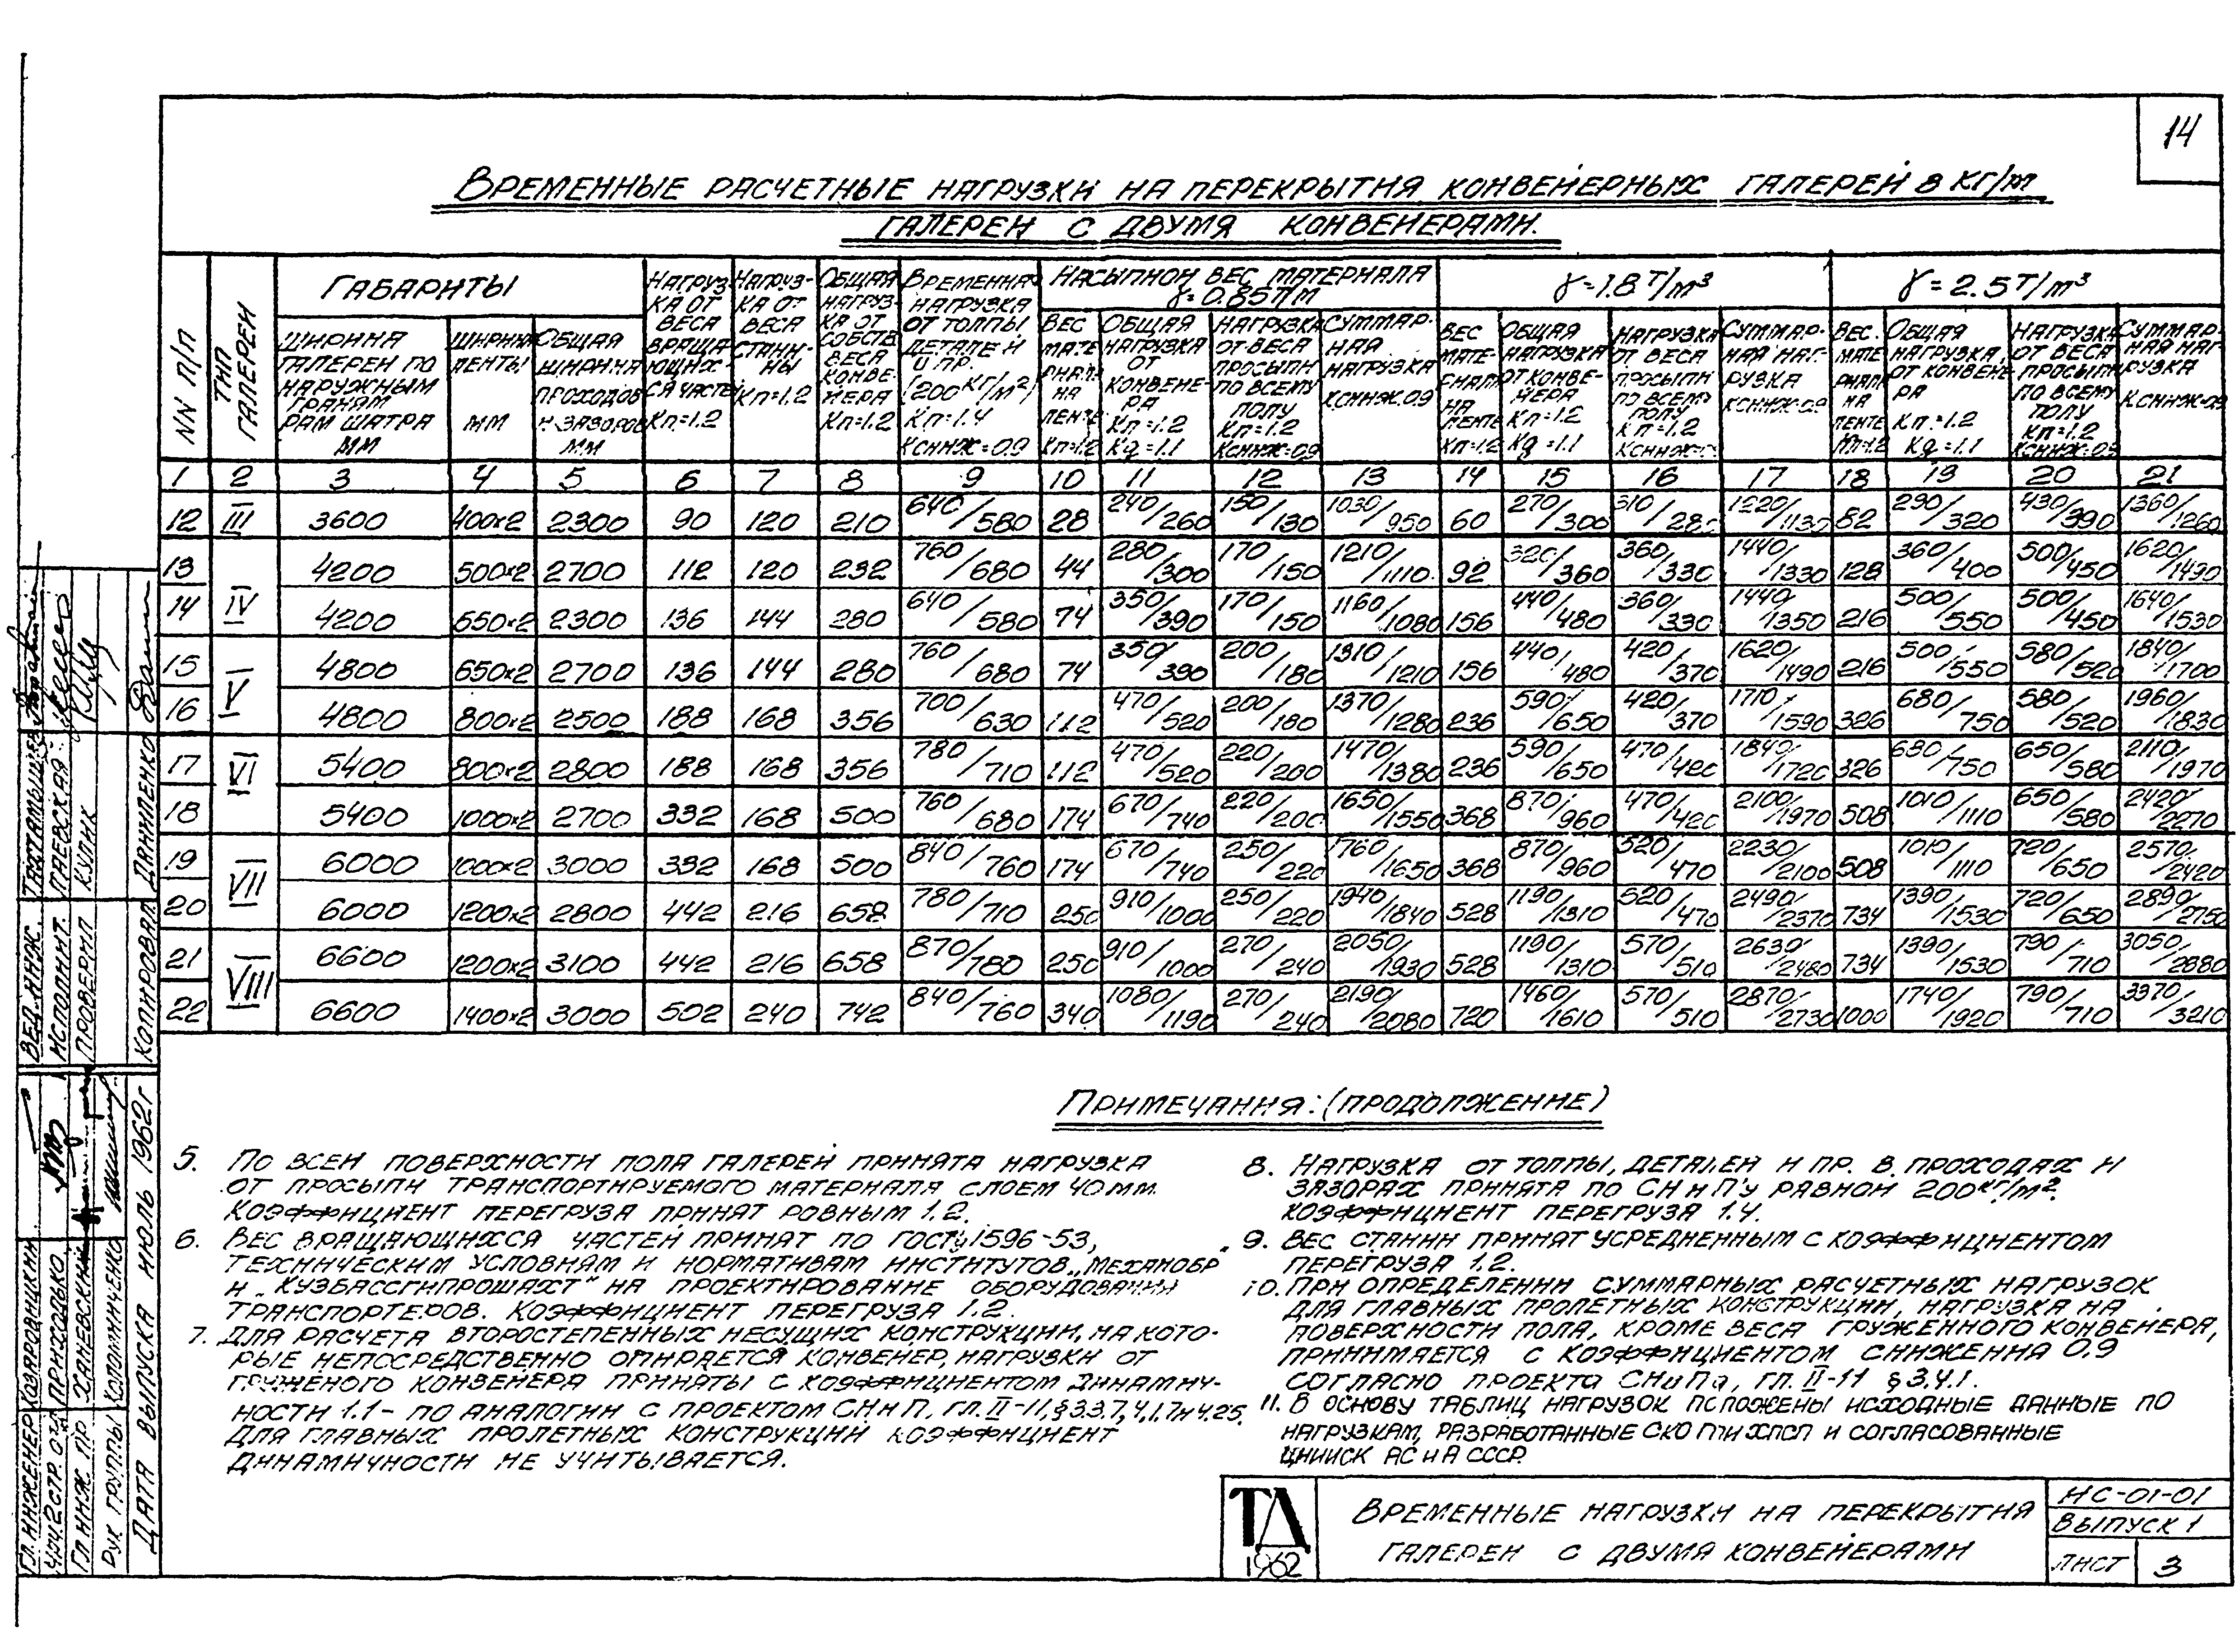 14
ВРЕМЕННЫЕ РАСЧЕТНЫЕ НАГРУЗКИ НА ПЕРЕКРЫТИЯ КОНВЕЙЕРНЫХ ГАЛЕРЕЙ В КГ/М
ГАЛЕРЕИ С ДВУМЯ КОНВЕЙЕРАМИ.
NN П/П
ТИП ГАЛЕРЕИ
ГАБАРИТЫ
ШИРИНА ГАЛЕРЕИ ПО НАРУЖНЫМ ГРАНЯМ РАМ ШАТРА ММ
ШИРИНА ЛЕНТЫ ММ
ОБЩАЯ ШИРИНА ПРОХОДОВ И ЗАЗОРОВ ММ
НАГРУЗКА ОТ ВЕСА ВРАЩАЮЩИХСЯ ЧАСТЕЙ Kп=1.2
НАГРУЗ-КА ОТ ВЕСА СТАНИ-НЫ Kп=1.2
ОБЩАЯ НАГРУЗ-КА ОТ СОБСТВ ВЕСА КОНВЕ-ЙЕРА Kп=1.2
ВРЕМЕННАЯ НАГРУЗКА ОТ ТОЛПЫ ДЕТАЛЕЙ И ПР. (200КГ/М²) Kп=1.4 Kсниж=0.9
НАСЫПНОЙ ВЕС МАТЕРИАЛА γ=0.85Т/М
ВЕС МАТЕ-РИАЛА НА ЛЕНТЕ Kп=1.2
ОБЩАЯ НАГРУЗКА ОТ КОНВЕЙЕ-РА Kп=1.2 Kд=1.1
НАГРУЗКА ОТ ВЕСА ПРОСЫПИ ПО ВСЕМУ ПОЛУ Kп=1.2 Kсниж=0.9
СУММАР-НАЯ НАГРУЗКА Kсниж=0.9
γ=1.8Т/м³
ВЕС МАТЕ-РИАЛА НА ЛЕНТЕ Kп=1.2
ОБЩАЯ НАГРУЗКА ОТ КОНВЕ-ЙЕРА Kп=1.2 Kд=1.1
НАГРУЗКА ОТ ВЕСА ПРОСЫПИ ПО ВСЕМУ ПОЛУ Kп=1.2
СУММАР-НАЯ НАГ-РУЗКА Kсниж=0.9
γ=2.5Т/м³
ВЕС МАТЕ РИАЛА НА ЛЕНТЕ Kп=1.2
ОБЩАЯ НАГРУЗКА ОТ КОНВЕЙЕ РА Kп=1.2 Kд=1.1
НАГРУЗКА ОТ ВЕСА ПРОСЫПИ ПО ВСЕМУ ПОЛУ Kп=1.2 Kсниж=0.9
СУММАР-НАЯ НАГ-РУЗКА Kсниж=0.9
1 2 3 4 5 6 7 8 9 10 11 12 13 14 15 16 17 18 19 20 21
12 III 3600 400×2 2300 90 120 210 640/580 28 240/260 150/130 1030/950 60 270/300 310/280 1220/1130 82 290/320 430/390 1360/1260
13 IV 4200 500×2 2700 112 120 232 760/680 44 280/300 170/150 1210/1110 92 320/360 360/330 1440/1330 128 360/400 500/450 1620/1490
14 4200 650×2 2300 136 144 280 640/580 74 350/390 170/150 1160/1080 156 440/480 360/330 1440/1350 216 500/550 500/450 1640/1530
15 V 4800 650×2 2700 136 144 280 760/680 74 350/390 200/180 1310/1210 156 440/480 420/370 1620/1490 216 500/550 580/520 1840/1700
16 4800 800×2 2500 188 168 356 700/630 112 470/520 200/180 1370/1280 236 590/650 420/370 1710/1590 326 680/750 580/520 1960/1830
17 VI 5400 800×2 2800 188 168 356 780/710 112 470/520 220/200 1470/1380 236 590/650 470/420 1840/1720 326 680/750 650/580 2110/1970
18 5400 1000×2 2700 332 168 500 760/680 174 670/740 220/200 1650/1550 368 870/960 470/420 2100/1970 508 1010/1110 650/580 2420/2270
19 VII 6000 1000×2 3000 332 168 500 840/760 174 670/740 250/220 1760/1650 368 870/960 520/470 2230/2100 508 1010/1110 720/650 2570/2420
20 6000 1200×2 2800 442 216 658 780/710 250 910/1000 250/220 1940/1840 528 1190/1310 520/470 2490/2370 734 1390/1530 720/650 2890/2750
21 VIII 6600 1200×2 3100 442 216 658 870/780 250 910/1000 270/240 2050/1930 528 1190/1310 570/510 2630/2480 734 1390/1530 790/710 3050/2880
22 6600 1400×2 3000 502 240 742 840/760 340 1080/1190 270/240 2190/2080 720 1460/1610 570/510 2870/2730 1000 1740/1920 790/710 3370/3210
ПРИМЕЧАНИЯ: (ПРОДОЛЖЕНИЕ)
5. ПО ВСЕЙ ПОВЕРХНОСТИ ПОЛА ГАЛЕРЕЙ ПРИНЯТА НАГРУЗКА
ОТ ПРОСЫПИ ТРАНСПОРТИРУЕМОГО МАТЕРИАЛА СЛОЕМ 40ММ.
КОЭФФИЦИЕНТ ПЕРЕГРУЗА ПРИНЯТ РОВНЫМ 1.2.
6. ВЕС ВРАЩАЮЩИХСЯ ЧАСТЕЙ ПРИНЯТ ПО ГОСТу 1596-53,
ТЕХНИЧЕСКИМ УСЛОВИЯМ И НОРМАТИВАМ ИНСТИТУТОВ „МЕХАНОБР"
И „КУЗБАССГИПРОШАХТ" НА ПРОЕКТИРОВАНИЕ ОБОРУДОВАНИЯ
ТРАНСПОРТЕРОВ. КОЭФФИЦИЕНТ ПЕРЕГРУЗА 1.2.
7. ДЛЯ РАСЧЕТА ВТОРОСТЕПЕННЫХ НЕСУЩИХ КОНСТРУКЦИЙ, НА КОТО-
РЫЕ НЕПОСРЕДСТВЕННО ОПИРАЕТСЯ КОНВЕЙЕР, НАГРУЗКИ ОТ
ГРУЖЁНОГО КОНВЕЙЕРА ПРИНЯТЫ С КОЭФФИЦИЕНТОМ ДИНАМИЧ-
НОСТИ 1.1- ПО АНАЛОГИИ С ПРОЕКТОМ СНиП. ГЛ. II-11, §3.3.7, 4.1.7и 4.25.
ДЛЯ ГЛАВНЫХ ПРОЛЕТНЫХ КОНСТРУКЦИЙ КОЭФФИЦИЕНТ
ДИНАМИЧНОСТИ НЕ УЧИТЫВАЕТСЯ.
8. НАГРУЗКА ОТ ТОЛПЫ, ДЕТАЛЕЙ И ПР. В ПРОХОДАХ И
ЗАЗОРАХ ПРИНЯТА ПО СНиП'у РАВНОЙ 200КГ/М².
КОЭФФИЦИЕНТ ПЕРЕГРУЗА 1.4.
9. ВЕС СТАНИН ПРИНЯТ УСРЕДНЕННЫМ С КОЭФФИЦИЕНТОМ
ПЕРЕГРУЗА 1.2.
10. ПРИ ОПРЕДЕЛЕНИИ СУММАРНЫХ РАСЧЕТНЫХ НАГРУЗОК
ДЛЯ ГЛАВНЫХ ПРОЛЕТНЫХ КОНСТРУКЦИЙ, НАГРУЗКА НА
ПОВЕРХНОСТИ ПОЛА, КРОМЕ ВЕСА ГРУЖЕННОГО КОНВЕЙЕРА,
ПРИНИМАЕТСЯ С КОЭФФИЦИЕНТОМ СНИЖЕНИЯ 0.9
СОГЛАСНО ПРОЕКТА СНиПа, ГЛ. II-11 §3.4.1.
11. В ОСНОВУ ТАБЛИЦ НАГРУЗОК ПОЛОЖЕНЫ ИСХОДНЫЕ ДАННЫЕ ПО
НАГРУЗКАМ, РАЗРАБОТАННЫЕ СКО ПТИ ХПСП И СОГЛАСОВАННЫЕ
ЦНИИСК АС и А СССР.
ТД
1962
ВРЕМЕННЫЕ НАГРУЗКИ НА ПЕРЕКРЫТИЯ
ГАЛЕРЕИ С ДВУМЯ КОНВЕЙЕРАМИ
ИС-01-01
ВЫПУСК 1
ЛИСТ 3
ВЕД. ИНЖ.
ИСПОЛНИТ. ЛАЕВСКАЯ
ПРОВЕРИЛ КУЛИК
КОПИРОВАЛ ДАНИЛЕНКО
ГЛ. ИНЖЕНЕР КОЗЯРОВИЦКИЙ
ПРИХОДЬКО
ГЛ ИНЖ. ПР. ХАНЕВСКИЙ
РУК ГРУППЫ КОЛОМИЙЧЕНКО
ДАТА ВЫПУСКА ИЮЛЬ 1962г